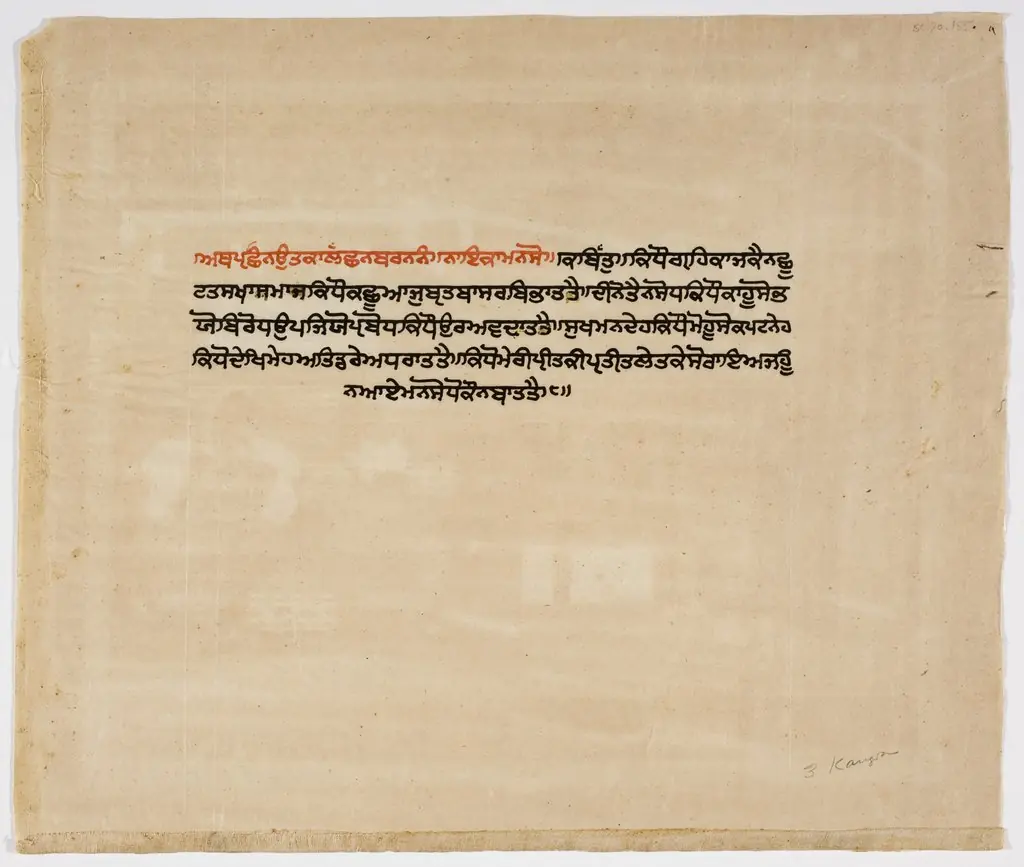 ॥ਅਥਪ੍ਰਛੰਨਉਤਕਾਲਛਨਬਰਨਨੰ॥ਨਾਇਕਾਮਨਸੋ॥ਕਬਿੱਤੁ॥ਕਿਧੌਗ੍ਰਹਿਕਾਜਕੈਨਛੂ
ਟਤਸਖਾਸਮਾਜਕਿਧੌਕਛੂਆਜੁਬ੍ਰਤਬਾਸਰਬਿਭਾਤਤੈ॥ਦੀਨੋਤੈਨਸੋਧਕਿਧੌਕਾਹੂਸੋਭ
ਯੋਬਿਰੋਧਉਪਜਿਯੋਪ੍ਰਬੋਧਕਿਧੌਉਰਅਵਦਾਤਤੈ॥ਸੁਖਮਨਦੇਹਕਿਧੌਮੋਹੂਸੋਕਪਟਨੇਹ
ਕਿਧੌਦੇਖਿਮੇਹਅਤਿਡਰੇਅਧਰਾਤਤੈ॥ਕਿਧੌਮੇਰੀਪ੍ਰੀਤਕੀਪ੍ਰਤੀਤਲੇਤਕੇਸੋਰਾਇਅਜਹੂੰ
ਨਆਏਮਨਸੋਧੋਕੌਨਬਾਤਤੈ॥੮॥
3 Kangra